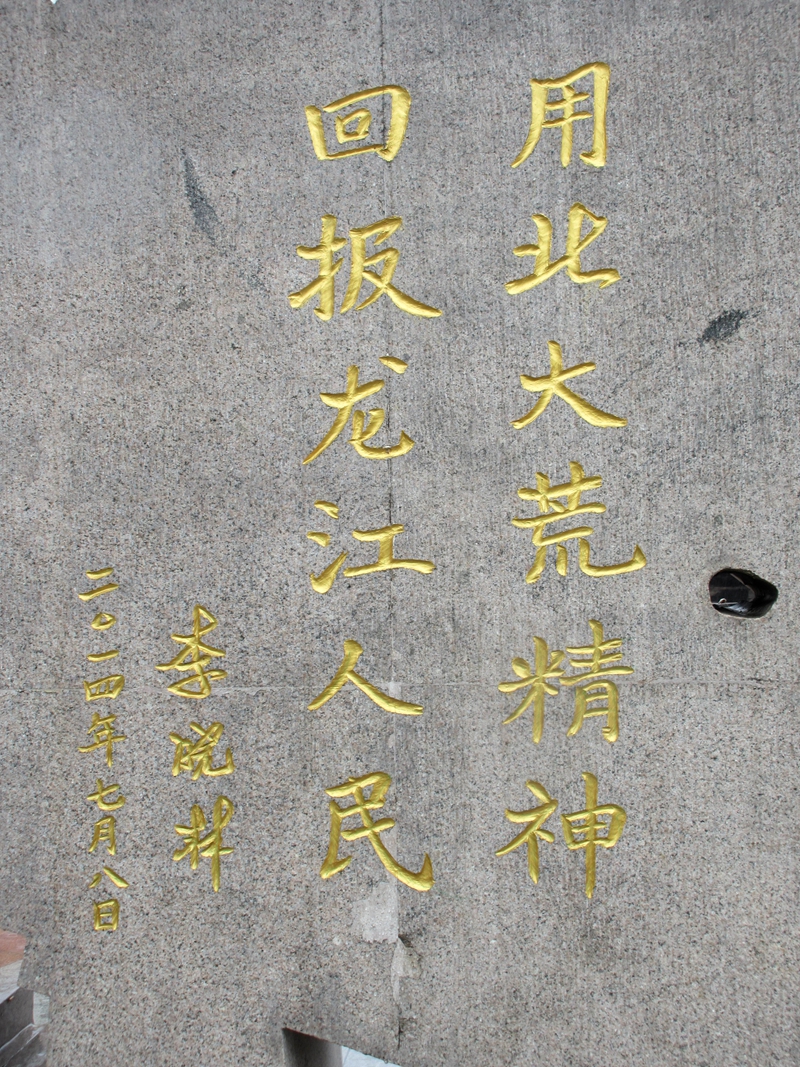 用北大荒精神
回报龙江人民
李晓林
二〇一四年七月八日